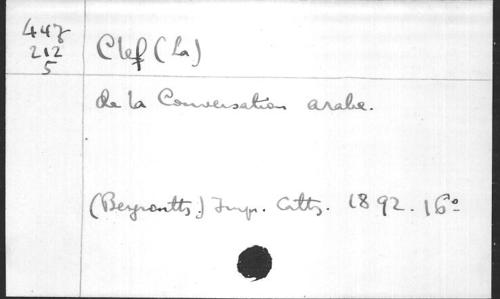 447
212
5
Clef (La)
de la Conversation arabe.
(Beyrouth.) Imp. Cath. 1892. 16º